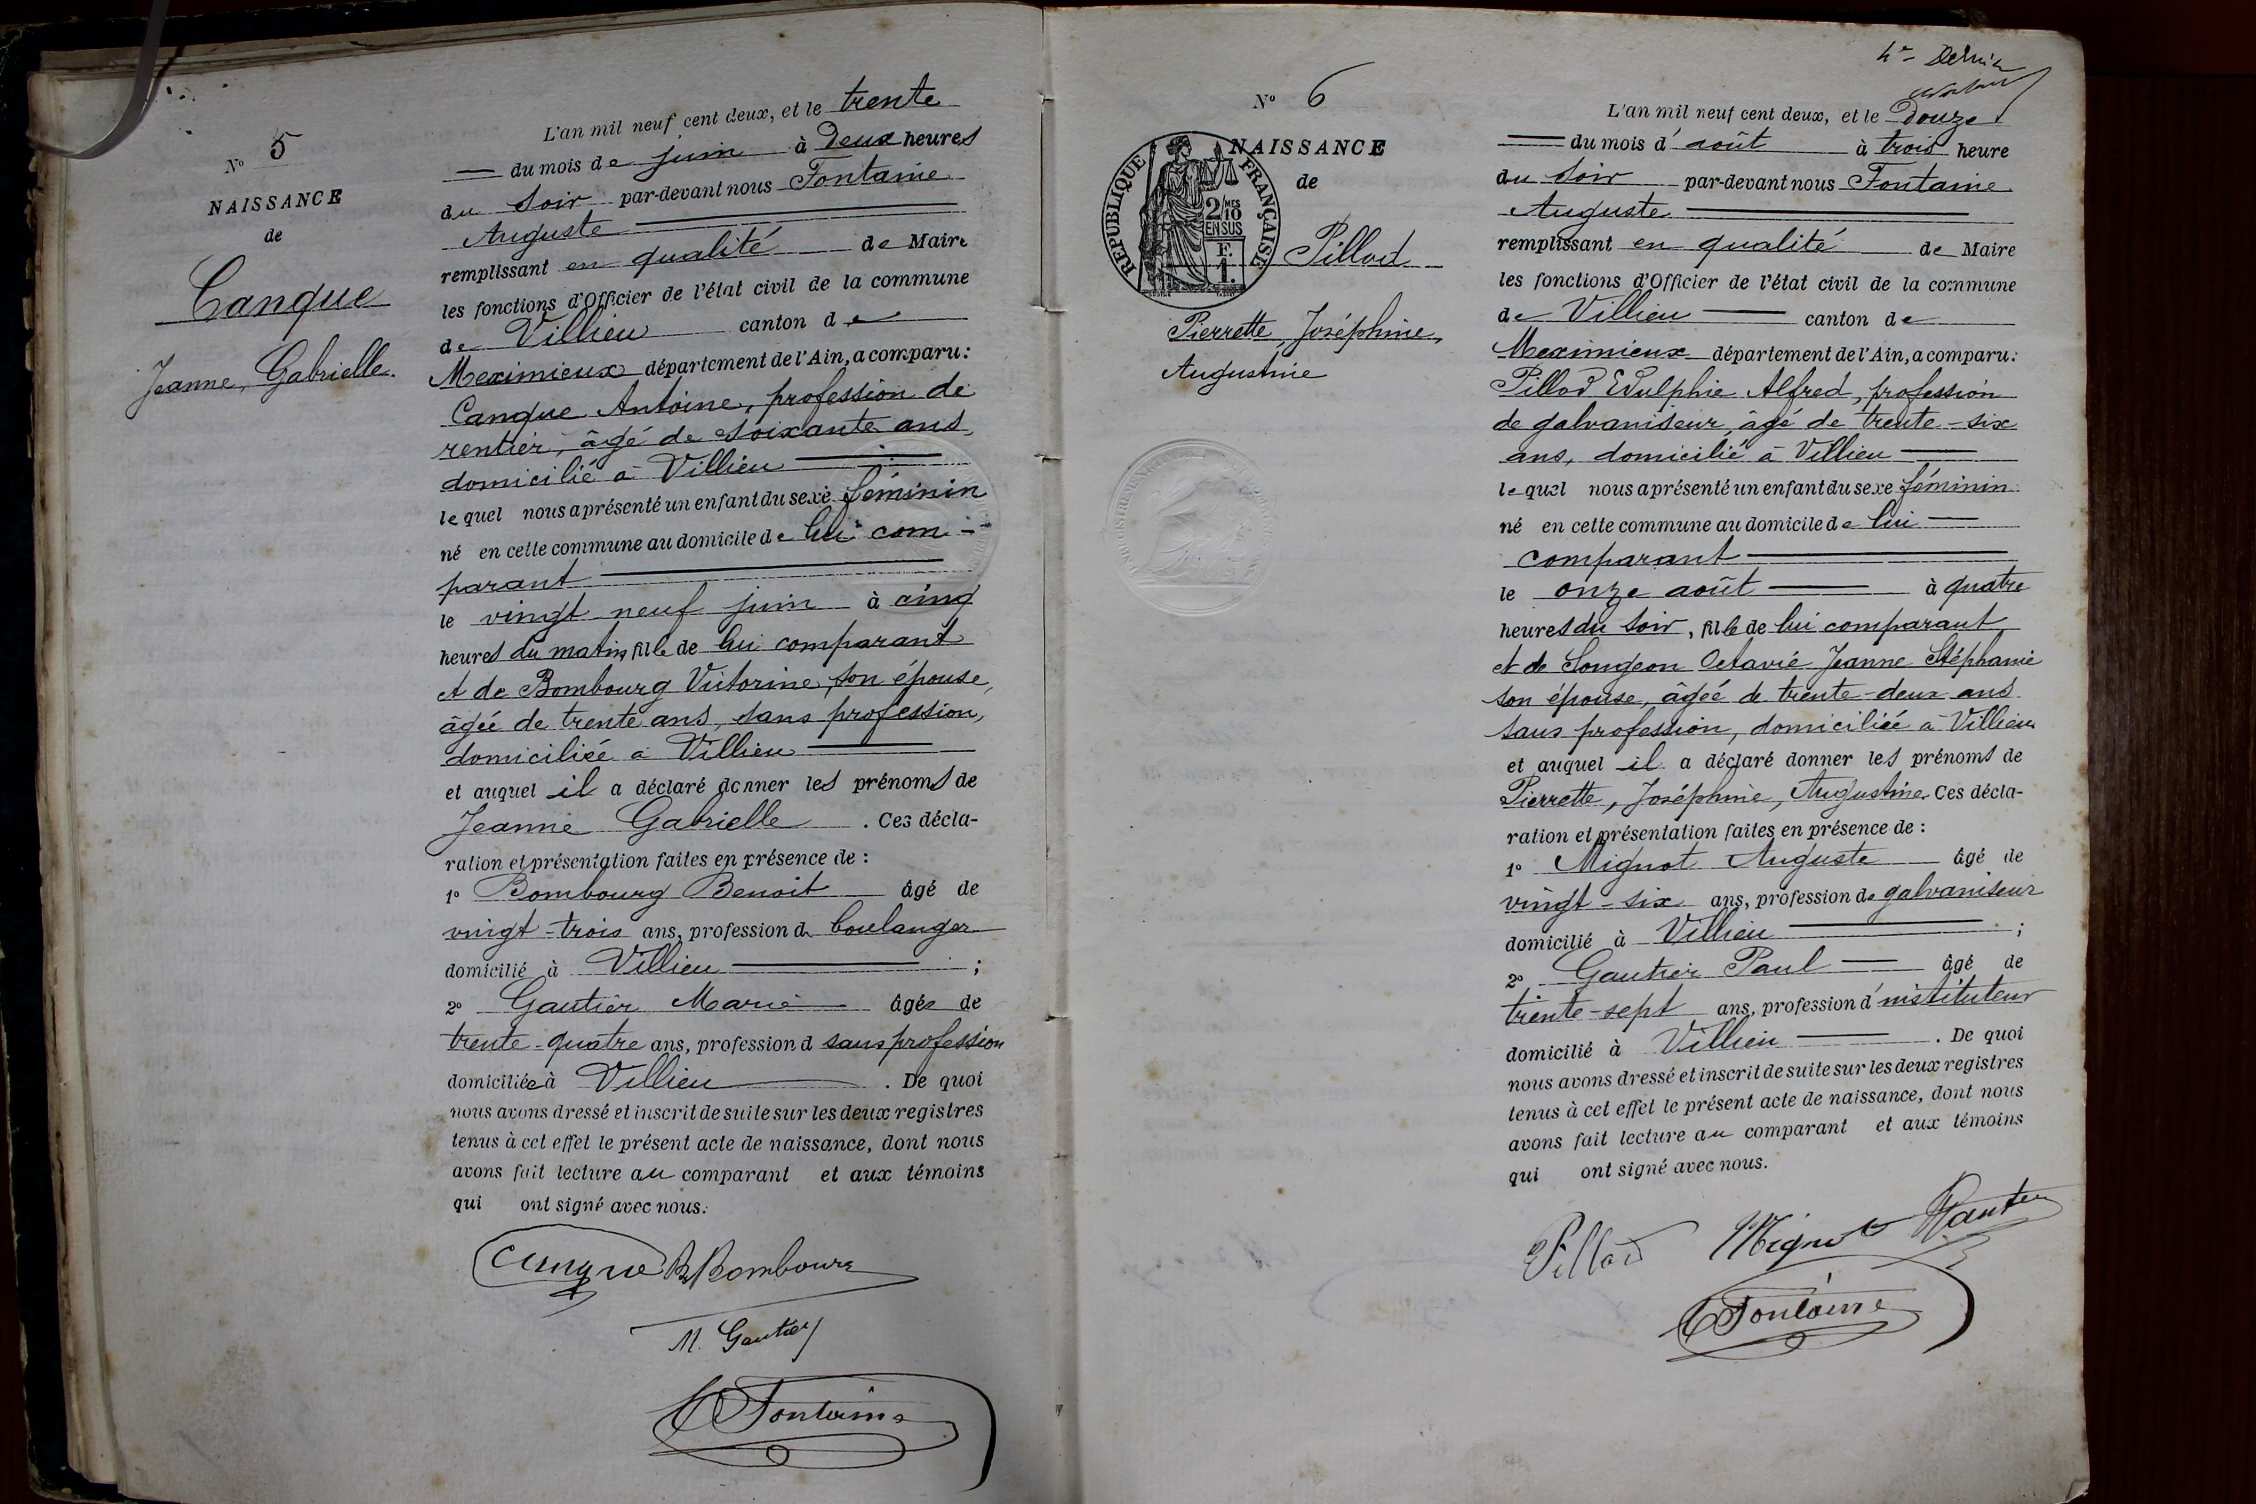 N° 5
NAISSANCE
de
Canque
Jeanne, Gabrielle.
L'an mil neuf cent deux, et le trente
du mois de juin à Deux heures
du Soir par-devant nous Fontaine
Auguste
remplissant en qualité de Maire
les fonctions d'Officier de l'état civil de la commune
de Villieu canton de
Meximieux département de l'Ain, a comparu:
Canque Antoine, profession de
rentier, âgé de soixante ans,
domicilié à Villieu
lequel nous a présenté un enfant du sexe féminin
né en cette commune au domicile de lui com-
parant
le vingt neuf juin à cinq
heures du matin, fille de lui comparant
et de Bombourg Victorine, son épouse,
âgée de trente ans, sans profession,
domiciliée à Villieu
et auquel il a déclaré donner les prénoms de
Jeanne Gabrielle. Ces décla-
ration et présentation faites en présence de :
1° Bombourg Benoit âgé de
vingt-trois ans, profession de boulanger
domicilié à Villieu ;
2° Gautier Marie âgée de
trente-quatre ans, profession d sans profession
domiciliée à Villieu . De quoi
nous avons dressé et inscrit de suite sur les deux registres
tenus à cet effet le présent acte de naissance, dont nous
avons fait lecture au comparant et aux témoins
qui ont signé avec nous.
Canque B Bombourg
M. Gautier
Fontaine
4e Dernier
N° 6
NAISSANCE
de
RÉPUBLIQUE FRANÇAISE
2/10 MES
EN SUS
F.
1
Pillod
Pierrette, Joséphine,
Augustine
L'an mil neuf cent deux, et le Douze
du mois d'août à trois heure
du Soir par-devant nous Fontaine
Auguste
remplissant en qualité de Maire
les fonctions d'Officier de l'état civil de la commune
de Villieu canton de
Meximieux département de l'Ain, a comparu:
Pillod Wulphie Alfred, profession
de galvaniseur, âgé de trente-six
ans, domicilié à Villieu
lequel nous a présenté un enfant du sexe féminin
né en cette commune au domicile de lui
comparant
le onze août à quatre
heures du soir, fille de lui comparant
et de Songeon Octavie Jeanne Stéphanie
son épouse, âgée de trente-deux ans
sans profession, domiciliée à Villieu
et auquel il a déclaré donner les prénoms de
Pierrette, Joséphine, Augustine. Ces décla-
ration et présentation faites en présence de :
1° Mignot Auguste âgé de
vingt-six ans, profession de galvaniseur
domicilié à Villieu ;
2° Gautier Paul âgé de
trente-sept ans, profession d'instituteur
domicilié à Villieu . De quoi
nous avons dressé et inscrit de suite sur les deux registres
tenus à cet effet le présent acte de naissance, dont nous
avons fait lecture au comparant et aux témoins
qui ont signé avec nous.
Pillod Mignot Gautier
Fontaine